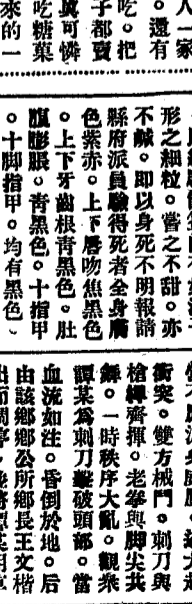 人一家
。還有
吃。把
子都賣
眞可憐
吃糖菓
來的一
形之細粒。嘗之不甜。亦
不鹹。即以身死不明報請
縣府派員驗得死者全身膚
色紫赤。上下唇吻焦黑色
。上下牙齒根靑黑色。肚
腹膨脹。靑黑色。十指甲
。十脚指甲。均有黑色。
衝突。雙方械鬥。刺刀與
槍繂齊揮。老拳與脚尖共
舞。一時秩序大亂。觀衆
譚某爲刺刀擊破頭部。當
血流如注。昏倒於地。后
由該鄉鄉公所鄉長王文楷